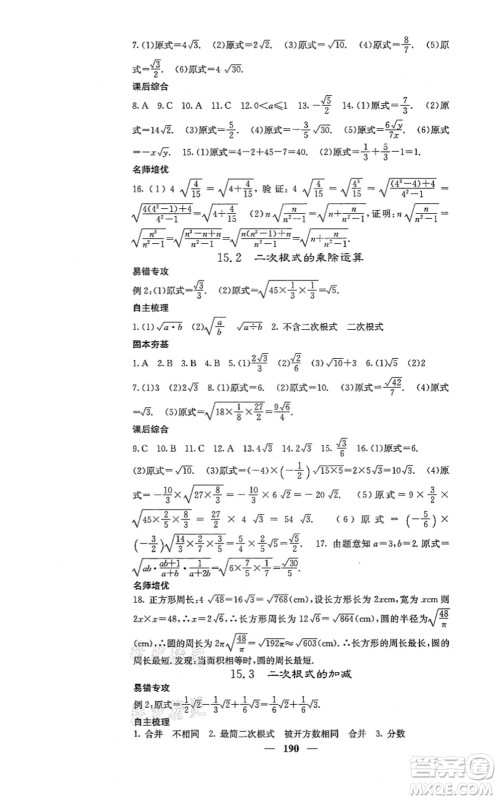 7. (1)原式=4√3. (2)原式=2√2. (3)原式=√10. (4)原式=8/7. (5)原
式=√3/2. (6)原式=4√30.
课后综合
8. A 9. C 10. A 11. C 12. 0<a≤1 13. -√5/2 14. (1)原式=7/3. (2)原
式=14√2. (3)原式=5/2. (4)原式=-3/5√30. (5)原式=6√y/7x. (6)原式
=-x√y. 15. (1)原式=4-2+45-7=40. (2)原式=1/3+5/3-1=1.
名师培优
16. (1) 4√4/15=√4+4/15, 验证: 4√4/15=√4³/15=√(4³-4)+4/4²-1=
√4(4²-1)+4/4²-1=√4+4/15. (2)n√n/n²-1=√n+n/n²-1, 证明: n√n/n²-1=
√n³/n²-1=√n³-n+n/n²-1=√n(n²-1)+n/n²-1=√n+n/n²-1.
15.2 二次根式的乘除运算
易错专攻
例2: (1)原式=√3/3. (2)原式=√45×1/3×1/3=√5.
自主梳理
1. (1)√a·b (2)√a/b √a÷b 2. 不含二次根式 二次根式
固本夯基
1. A 2. B 3. A 4. B 5. (1)2√3/3 (2)√6/2 (3)√10+√5 6. (1)√2 (2)2
7. (1)3 (2)2√3 (3)原式=6. (4)原式=9. 8. (1)原式=√42/7. (2)原
式=√3. (3)原式=6√2. (4)原式=√18×1/8×27/2=9√6/4.
课后综合
9. C 10. B 11. A 12. 3 13. 4√3 14. 2√5 15. √3/6 16. (1)原式=1.
(2)原式=√10. (3)原式=(-4)×(-1/2)√15×5=10√3. (4)原式=
-10/3×√27×8/3=-10/3×6√2=-20√2. (5)原式=9×3/2×
√45×5/2×1/3=4√3=54√3. (6)原式=(-5/6)×
(-3/2)×√4/15×3/2=√10/4. 17. 由题意知a=3,b=2. 原式=
√ab·ab+1/a+b·1/a+2b=√2/5.
名师培优
18. 正方形周长:4√48=16√3=√768(cm), 设长方形宽为xcm,长为2xcm,则
2x×x=48,x=2√6,∴长方形周长:6×2√6=12√6=√864(cm), 圆的半径为√48/π
(cm),∴圆的周长:2π×√48/π=√192π≈√603(cm),∴长方形的周长最长,圆的周
长最短. 发现:当面积相等时,圆的周长最短.
15.3 二次根式的加减
易错专攻
例2: 原式=1/2√2-1/6√2+1/3√6=1/3√2+1/3√6.
自主梳理
1. 合并 不相同 2. 最简二次根式 被开方数相同 合并 3. 分数
190